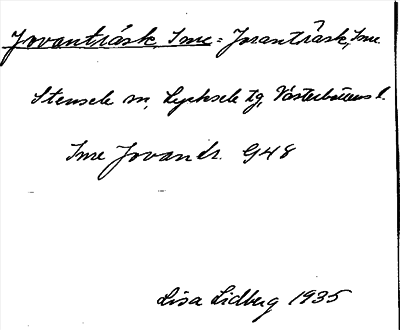 Jovanträsk, Sme = Joranträsk, Sme.
Stensele sn, Lycksele tg, Västerbottens l.
Sme Jovandr. G48
Lisa Lidberg 1935